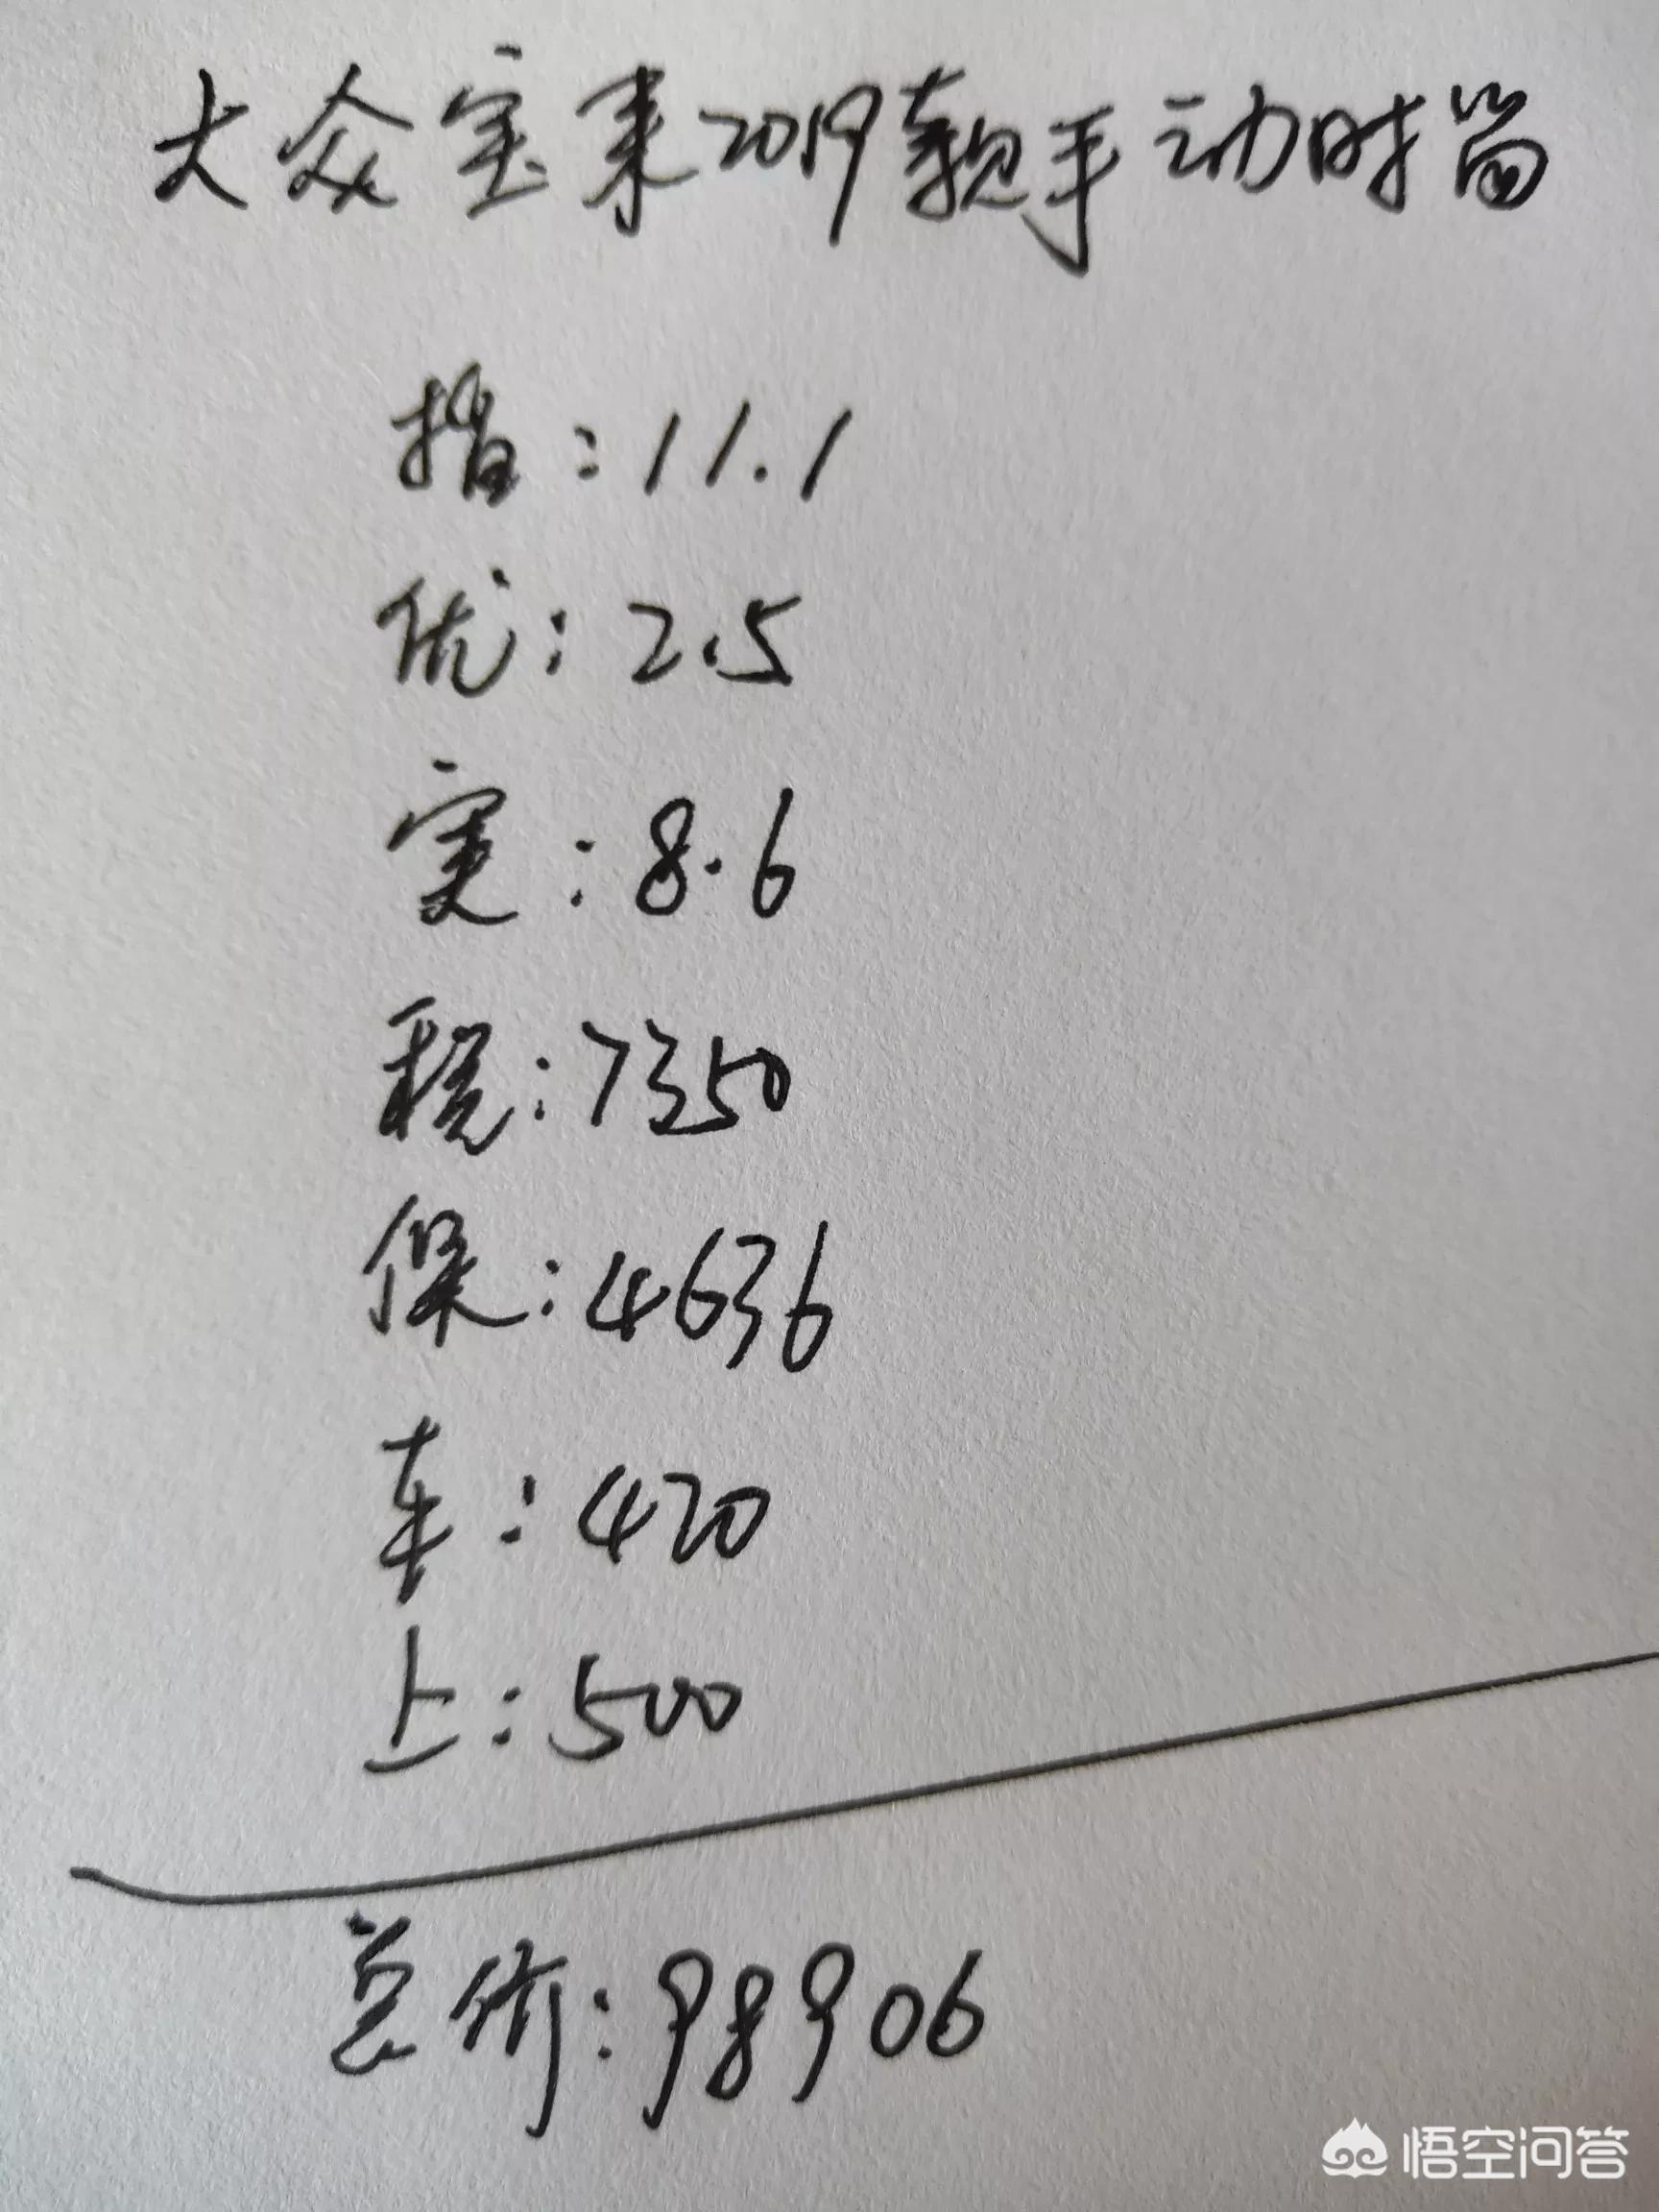 大众宝来2019款手动时尚
指:11.1
优:2.5
实:8.6
税:7350
保:4636
车:420
上:500
总价:98906
悟空问答